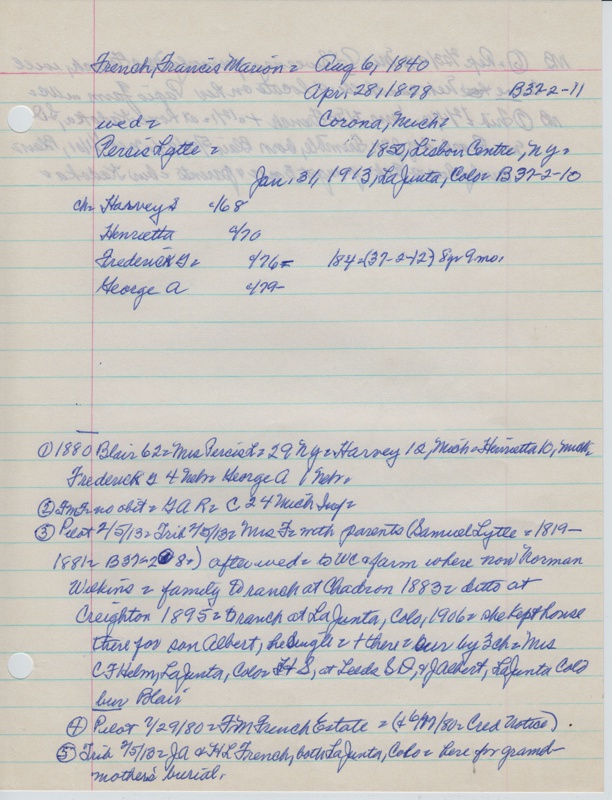 French, Francis Marion = Aug 6, 1840
Apr, 28, 1878 B37-2-11
wed = Corona, Mich =
Percis Lytle = 1850, Lisbon Centre, NY =
Jan, 31, 1913, LaJunta, Colo = B37-2-10
ch = Harvey S c/68
Henrietta c/70
Frederick G = c/76 = 184 = (37-2-12) 8yr 9mo.
George A c/79 -
① 1880 Blair 62 = Mrs Percis L = 29 NY = Harvey 12, Mich = Henrietta 10, Mich =
Frederick G 4 Neb = George A 1 Neb =
② FMF = no obit = GAR = C 24 Mich Inf =
③ Pilot 2/5/13 = Trib 2/5/13 = Mrs F = with parents (Samuel Lytle = 1819 -
1881 = B37-2-8 =) after wed = to WC = farm where now Norman
Wilkins = family to ranch at Chadron 1883 = ditto at
Creighton 1895 = to ranch at LaJunta, Colo, 1906 = she kept house
there for son Albert, he single = + there = sur by 3 ch = Mrs
C F Helm, LaJunta, Colo = H S, at Leeds S D, & J Albert, LaJunta Colo
bur Blair
④ Pilot 7/29/80 = F M French Estate = (+ /80 = Cred Notice)
⑤ Trib 2/5/13 = JA & HL French, both LaJunta, Colo = here for grand-
mother's burial.